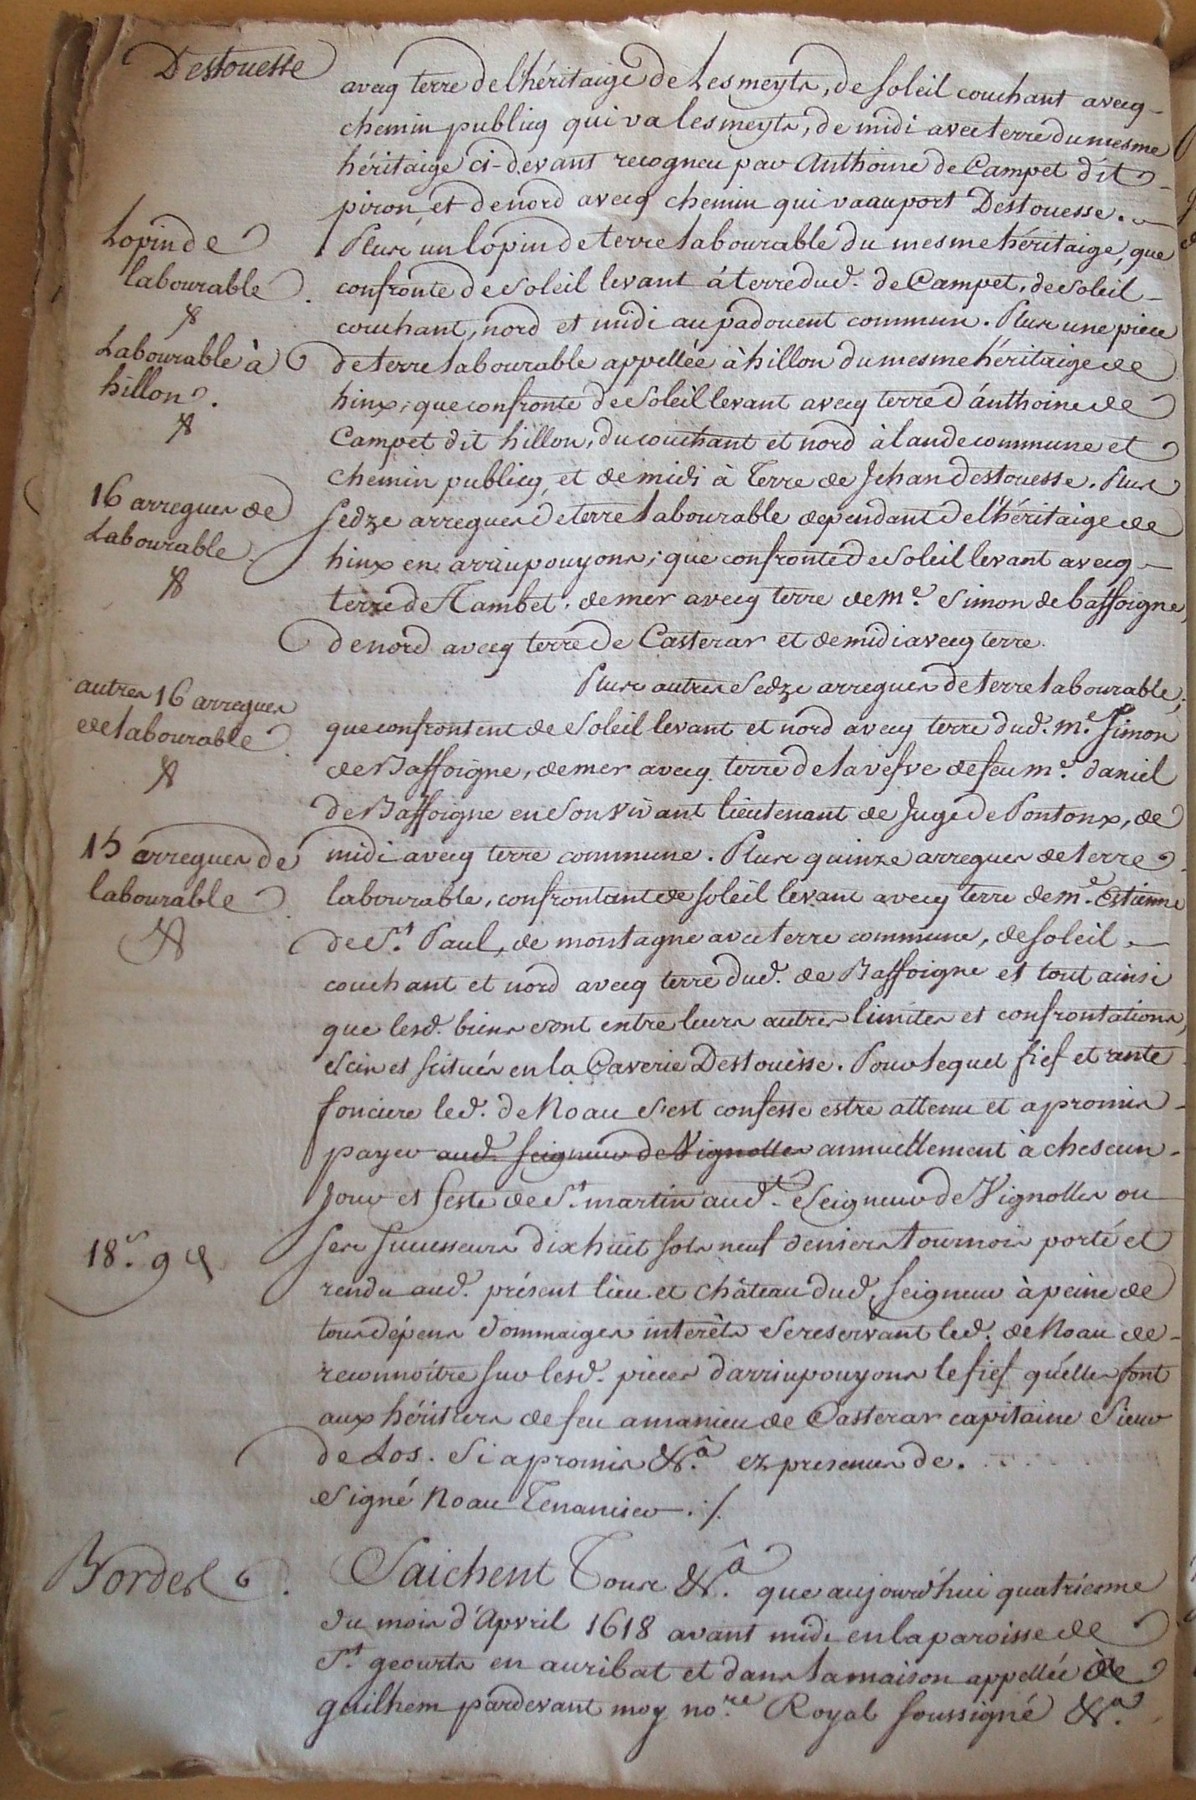 Destouesse
avecq terre de l'héritaige de Lesmeyts, de soleil couchant avecq
chemin publicq qui va lesmeyts, de midi avec terre du mesme
héritaige ci-devant recogneu par Anthoine de Campet dit
piron et de nord avecq chemin qui va au port Destouesse.
Lopin de
labourable
Plus un lopin de terre labourable du mesme héritaige, que
confronte de soleil levant à terre dud. de Campet, de soleil
couchant, nord et midi au padouent commun. Plus une piece
Labourable à
hillon.
de terre labourable appellée à hillon du mesme héritaige de
hinx, que confronte de soleil levant avecq terre d'anthoine de
Campet dit hillon, du couchant et nord à lande commune et
chemin publicq, et de midi à Terre de Jehan Destouesse. Plus
16 arregues de
Labourable
sedze arregues de terre labourable dependant de l'héritaige de
hinx en arriupouyons, que confronte de soleil levant avecq
terre de Tambet, de mer avecq terre de me. Simon de baffoigne,
de nord avecq terre de Casterar et de midi avecq terre.
autres 16 arregues
de labourable
Plus autres sedze arregues de terre labourable,
que confrontent de soleil levant et nord avecq terre dud. me. Simon
de Baffoigne, de mer avecq terre de la vefve de feu me. daniel
de Baffoigne en son vivant lieutenant de Juge de Pontonx, de
15 arregues de
labourable
midi avecq terre commune. Plus quinze arregues de terre
labourable, confrontant de soleil levant avecq terre de me. Estienne
de St. Paul, de montagne avec terre commune, de soleil
couchant et nord avecq terre dud. de Baffoigne et tout ainsi
que lesd. biens sont entre leurs autres limites et confrontations,
scis et scitués en la Caverie Destouesse. Pour lequel fief et rante
fonciere led. de Noau s'est confesse estre attenu et a promis
payer aud. seigneur de Vignolles annuellement à chescun
Jour et feste de St. martin aud. Seigneur de Vignolles ou
18s. 9d
ses successeurs dixhuit sols neuf deniers tournois porté et
rendu aud. présent lieu et château dud. seigneur à peine de
tous dépens dommaiges interêts se reservant led. de Noau de
reconnoître sur lesd. pieces d'arriupouyons le fief qu'elles font
aux héritiers de feu amanieu de Casterar capitaine Sieur
de Los. Si a promis &a. ez presences de.
Signé Noau Tenancier ./.
Bordes
Saichent Tous &a. que aujourd'hui quatriesme
du mois d'Apvril 1618 avant midi en la paroisse de
St. geourts en auribat et dans la maison appellée de
guilhem pardevant moy nore. Royal soussigné &a.